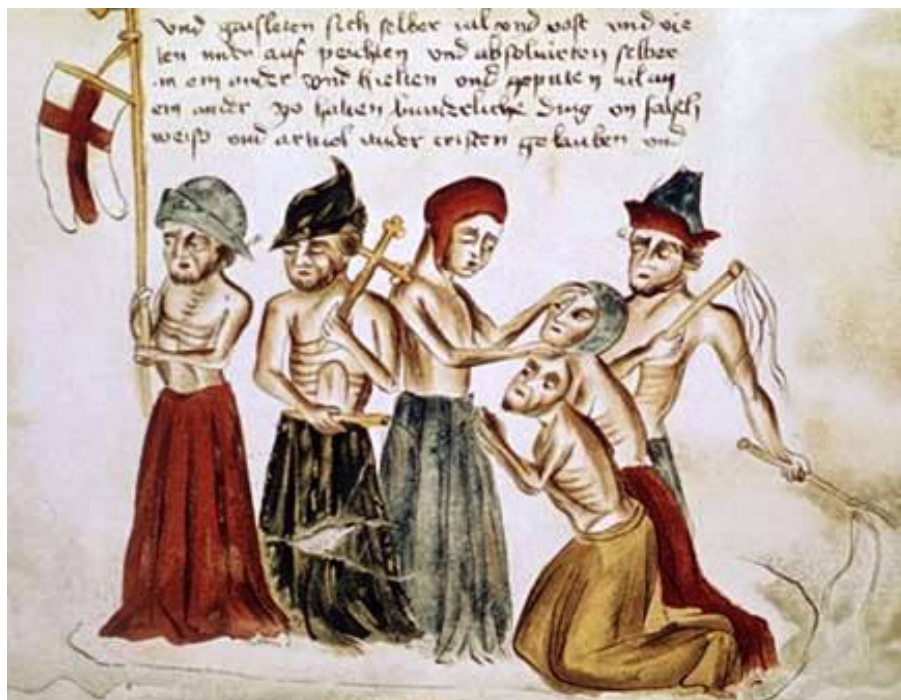 Vnd gaisleten sich selber vil vnd vast vnd vie
len nider auf peichten vnd absoluirten selber
an ein ander vnd hielten vnd geputen vil an
ein ander Vnd haben wunderliche ding vn
weiß vnd artikel wider cristen gelauben vnd